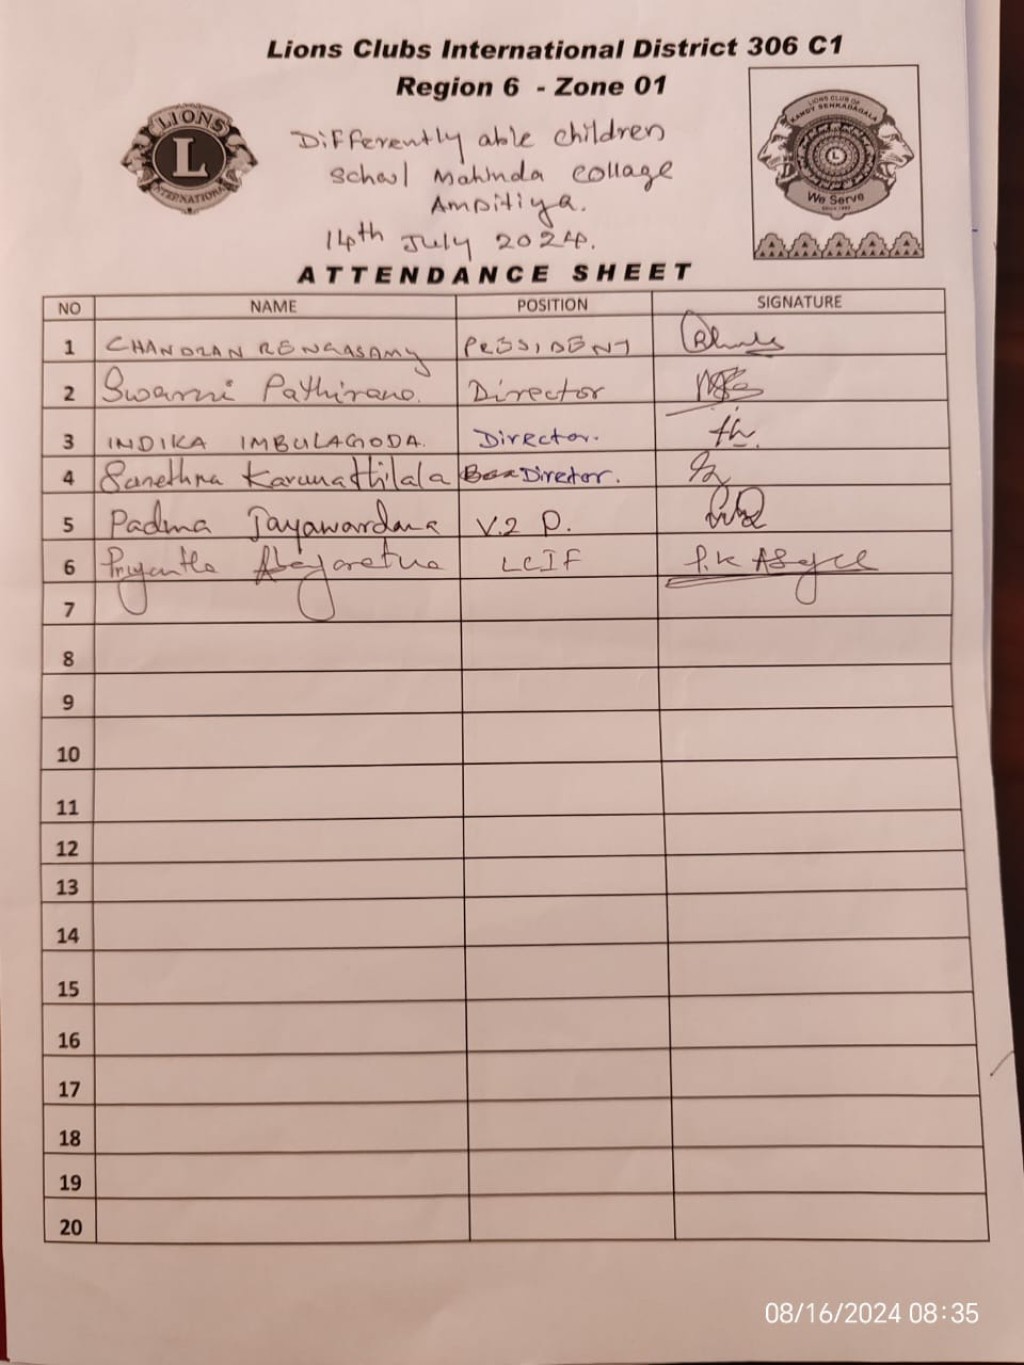 Lions Clubs International District 306 C1
Region 6 - Zone 01
LIONS
L
INTERNATIONAL
LIONS CLUB OF
KANDY SENKADAGALA
L
We Serve
Differently able children
school Mahinda collage
Ampitiya.
14th July 2024.
ATTENDANCE SHEET
NO NAME POSITION SIGNATURE
1 CHANDRAN RENGASAMY PRESIDENT
2 Swarni Pathirana. Director
3 INDIKA IMBULAGODA. Director.
4 Sunethra Karunathilala Director.
5 Padma Jayawardana V.2 P.
6 Priyantha Abeyaratna LCIF
7
8
9
10
11
12
13
14
15
16
17
18
19
20
08/16/2024 08:35